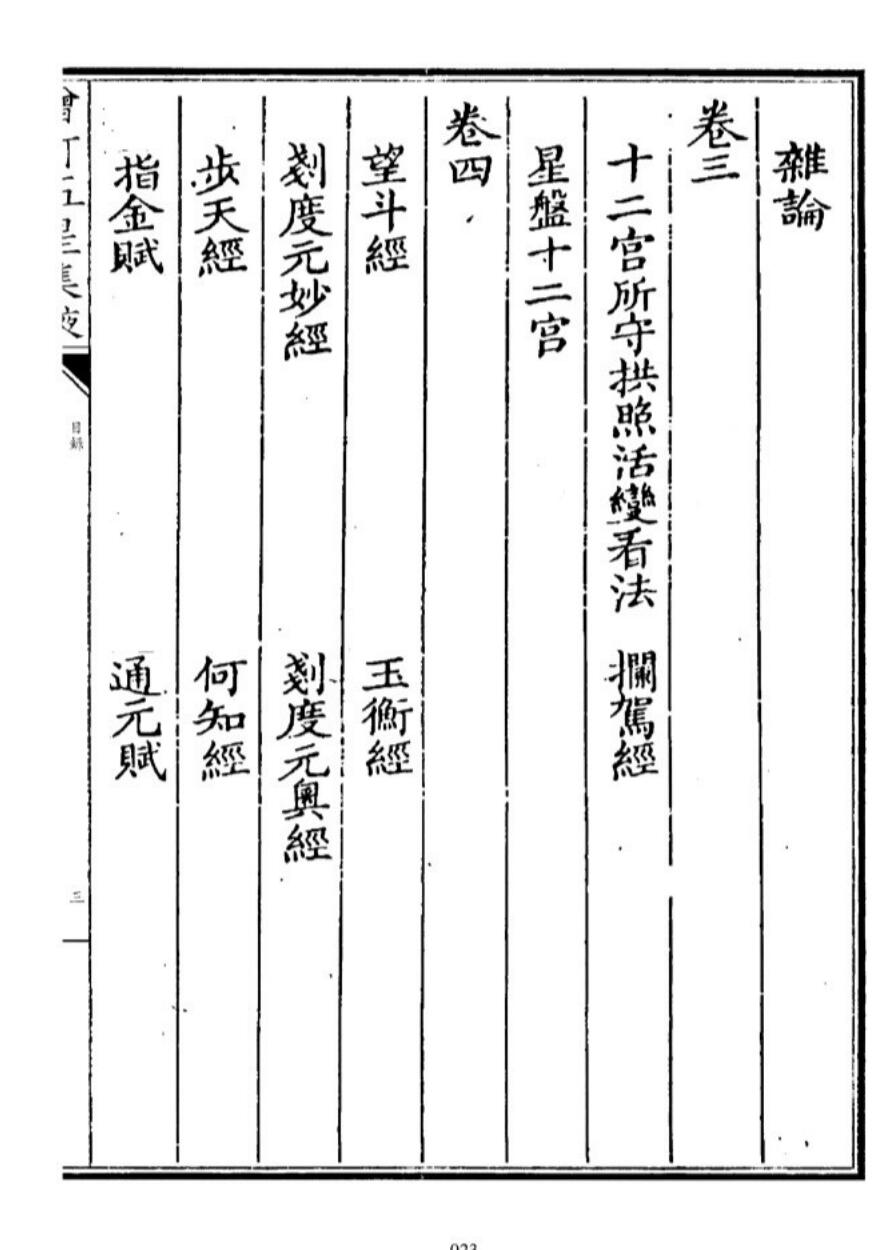 雜論
卷三
十二宮所守拱照活變看法　攔駕經
星盤十二宮
卷四
望斗經　玉衡經
剗度元妙經　剗度元奧經
步天經　何知經
指金賦　通元賦
目錄
三
023